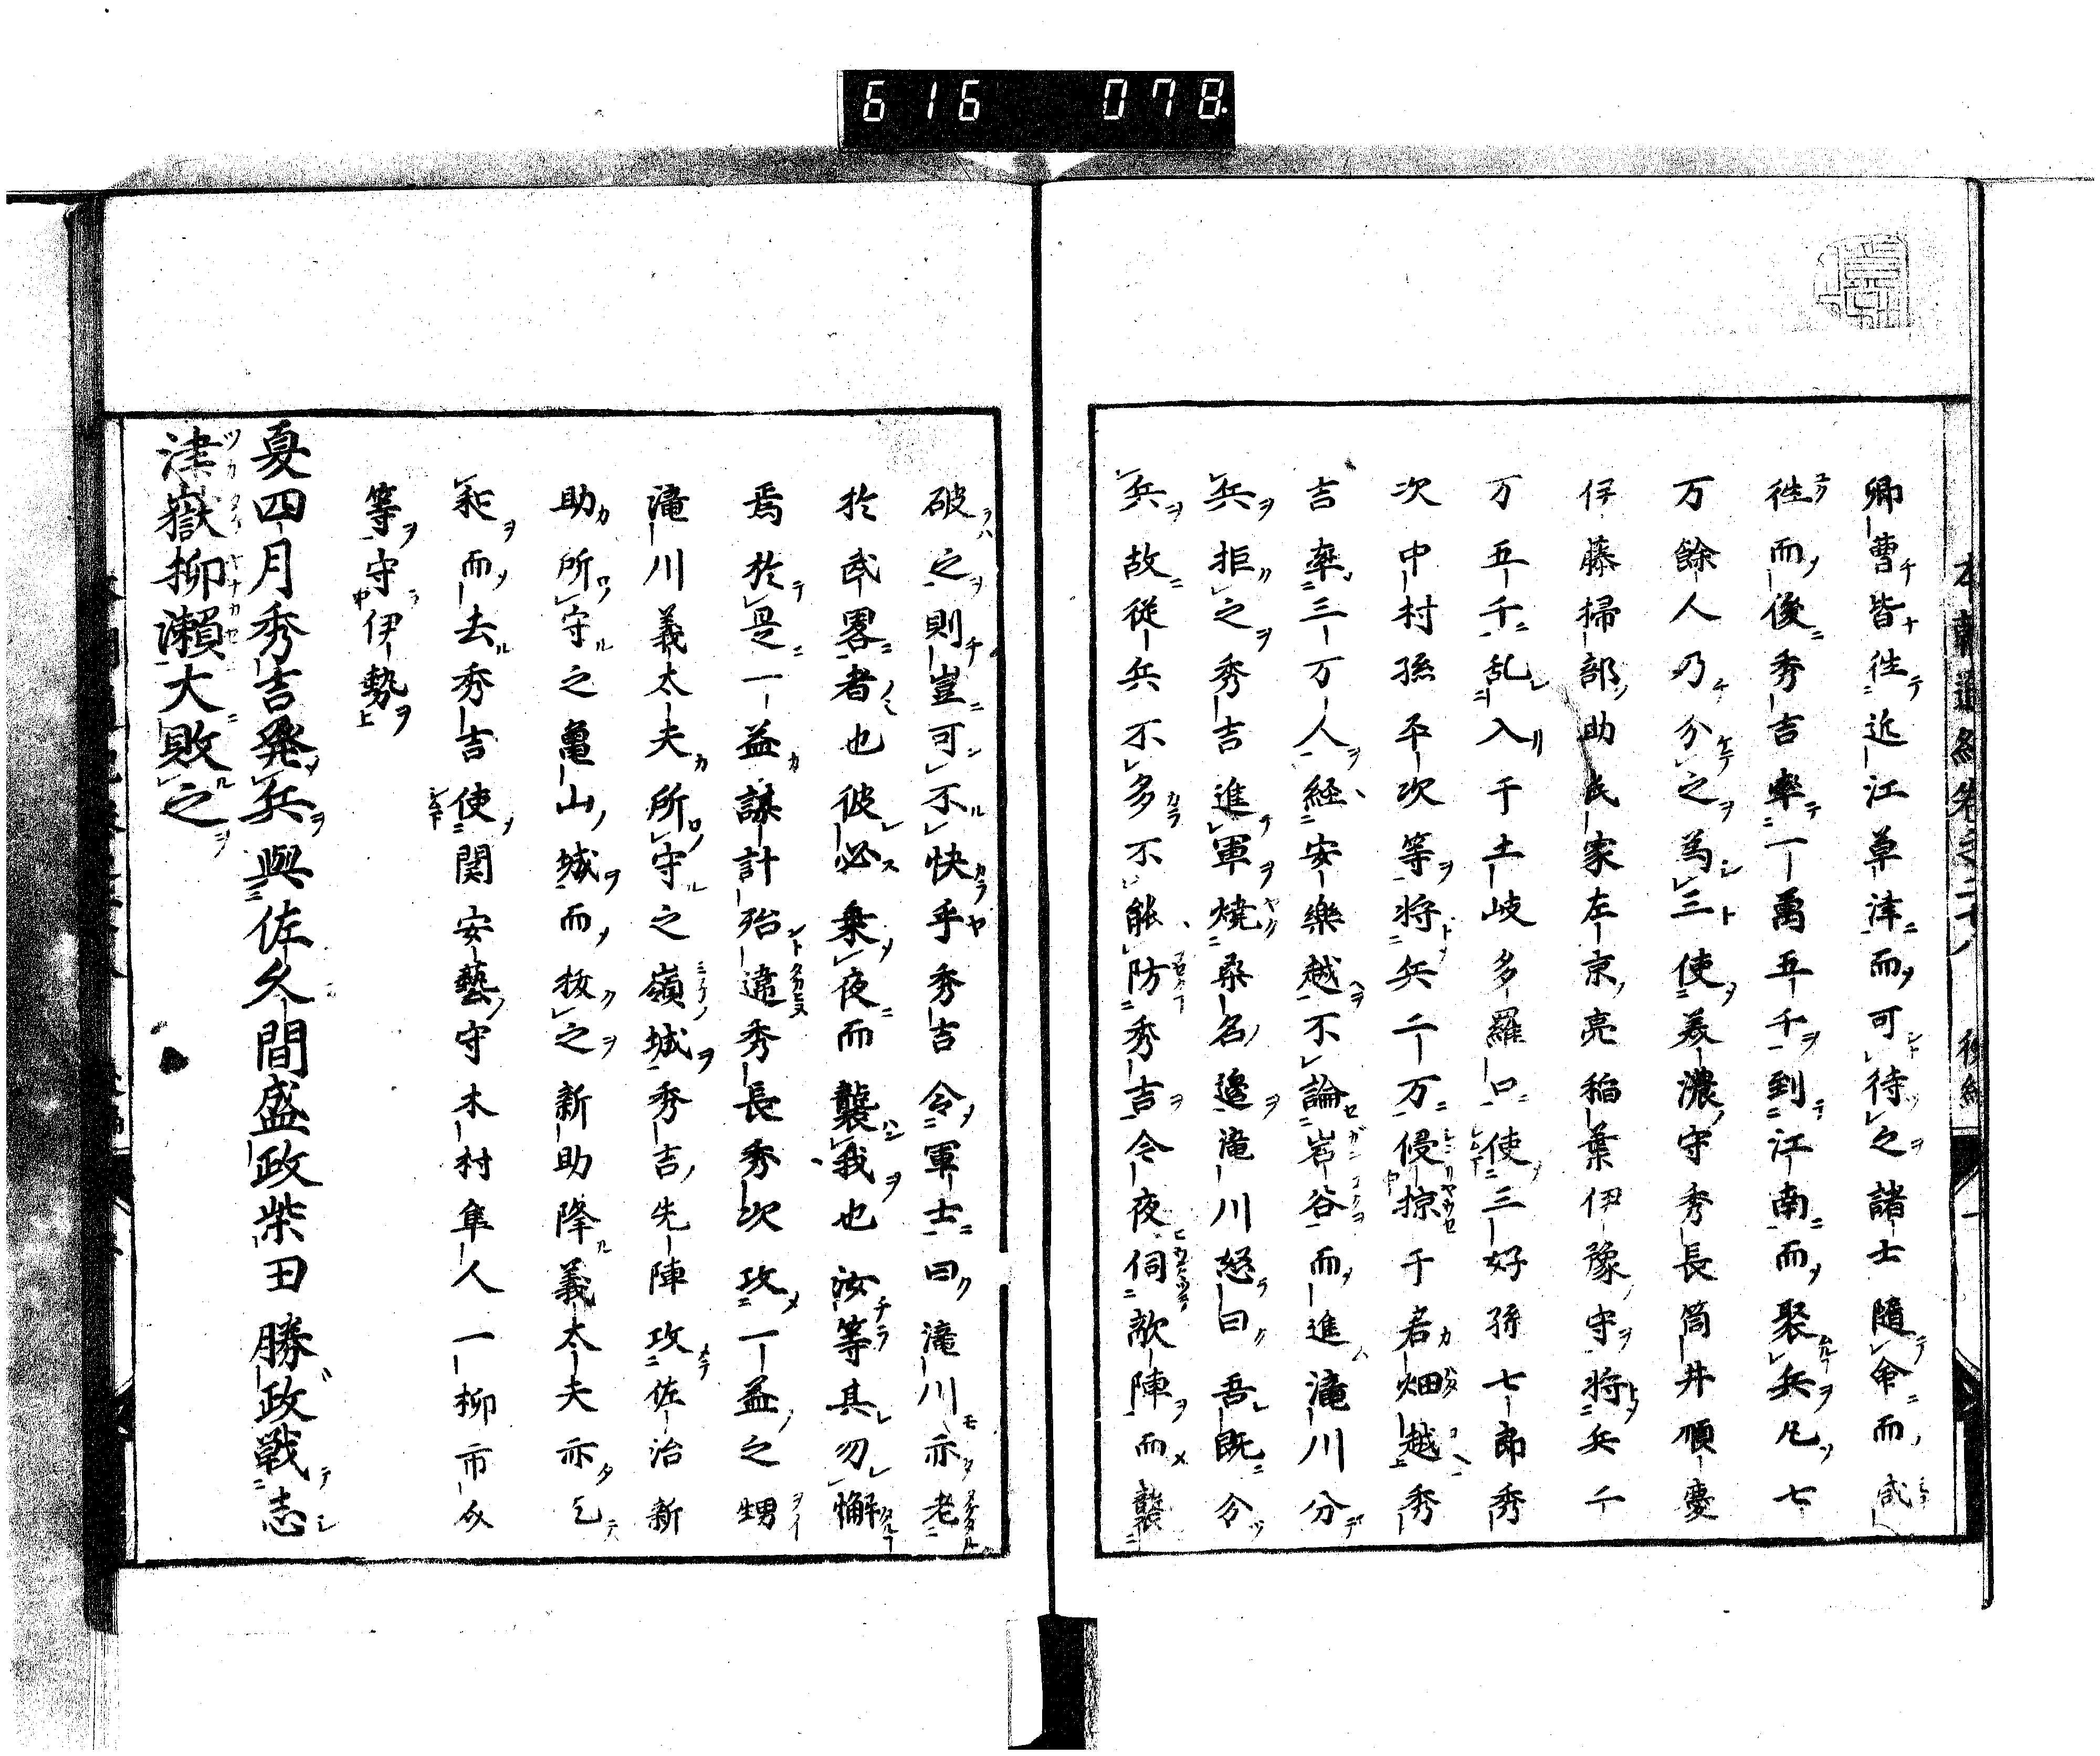 616 078
卿曹皆徃近江草津而可待之諸士隨命而咸
徃而後秀吉率一萬五千到江南而聚兵凡七
万餘人乃分之為三使美濃守秀長筒井順慶
伊藤掃部助氏家左京亮稲葉伊豫守将兵二
万五千乱入于土岐多羅口使三好孫七郎秀
次中村孫平次等将兵二万侵掠于君畑越秀
吉率三万人経安樂越不論岩谷而進滝川分
兵拒之秀吉進軍燒桑名邊滝川怒曰吾既令
兵故従兵不多不能防秀吉令夜伺敵陣而襲
破之則豈可不快乎秀吉令軍士曰滝川亦老
於武畧者也彼必乗夜而襲我也汝等其勿懈
焉於是一益謀計殆違秀長秀次攻一益之甥
滝川義太夫所守之嶺城秀吉先陣攻佐治新
助所守之亀山城而抜之新助降義太夫亦乞
和而去秀吉使関安藝守木村隼人一柳市介
等守伊勢
夏四月秀吉発兵與佐久間盛政柴田勝政戦志
津嶽柳瀬大敗之